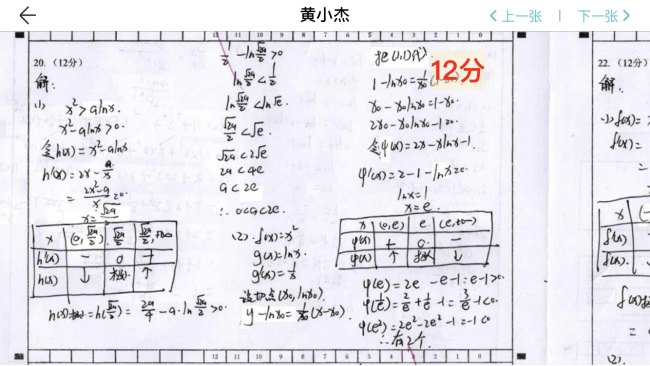 黄小杰
上一张
下一张
12分
20. (12分)
解:
(1) x²>alnx.
x²-alnx>0.
令h(x)=x²-alnx
h'(x)=2x-a/x
=(2x²-a)/x=0
x=√2a/2
x (0,√2a/2) √2a/2 (√2a/2,+∞)
h'(x) - 0 +
h(x) ↓ 极小 ↑
h(x)极小=h(√2a/2)=2a/4-a·ln√2a/2>0.
1/2-ln√2a/2>0
ln√2a/2<1/2
ln√2a/2<ln√e.
√2a/2<√e.
√2a<2√e
2a<4e
a<2e
∴0<a<2e.
(2)·f(x)=x²
g(x)=lnx.
g'(x)=1/x
设切点(x₀,lnx₀)
y-lnx₀=1/x₀(x-x₀)
把(1,1)代
1-lnx₀=1/x₀(1-x₀)
x₀-x₀lnx₀=1-x₀
2x₀-x₀lnx₀-1=0.
令φ(x)=2x-xlnx-1.
φ'(x)=2-1-lnx=0.
lnx=1
x=e.
x (0,e) e (e,+∞)
φ'(x) + 0 -
φ(x) ↑ 极大 ↓
φ(e)=2e-e-1=e-1>0
φ(1/e)=2/e+1/e-1=3/e-1<0.
φ(e²)=2e²-2e²-1=-1<0
∴有2个.
22. (12分)
解:
(1) f(x)=
f'(x)=
=
x
f'(x)
f(x)
f(x)极
=
(2).